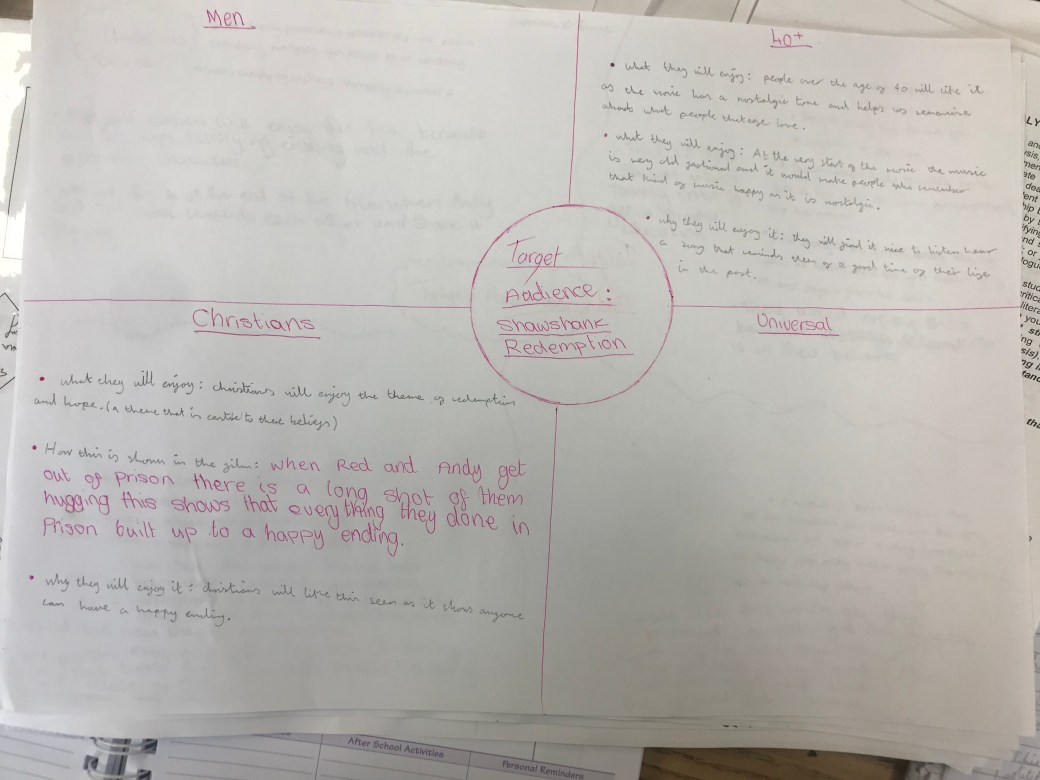 Men
40+
• what they will enjoy: people over the age of 40 will like it
as the movie has a nostalgic tone and helps us remenice
about what people that age love.
• what they will enjoy: At the very start of the movie the music
is very old fashioned and it would make people who remember
that kind of music happy as it is nostalgic.
• why they will enjoy it: they will find it nice to listen hear
a song that reminds them of a good time of their life
in the past.
Target
Audience:
Shawshank
Redemption
Christians
• what they will enjoy: christians will enjoy the theme of redemption
and hope. (a theme that is to their beliefs)
• How this is shown in the film: when Red and Andy get
out of prison there is a long shot of them
hugging this shows that everything they done in
Prison built up to a happy ending.
• why they will enjoy it: christians will like this seen as it shows anyone
can have a happy ending.
Universal
After School Activities
Personal Reminders